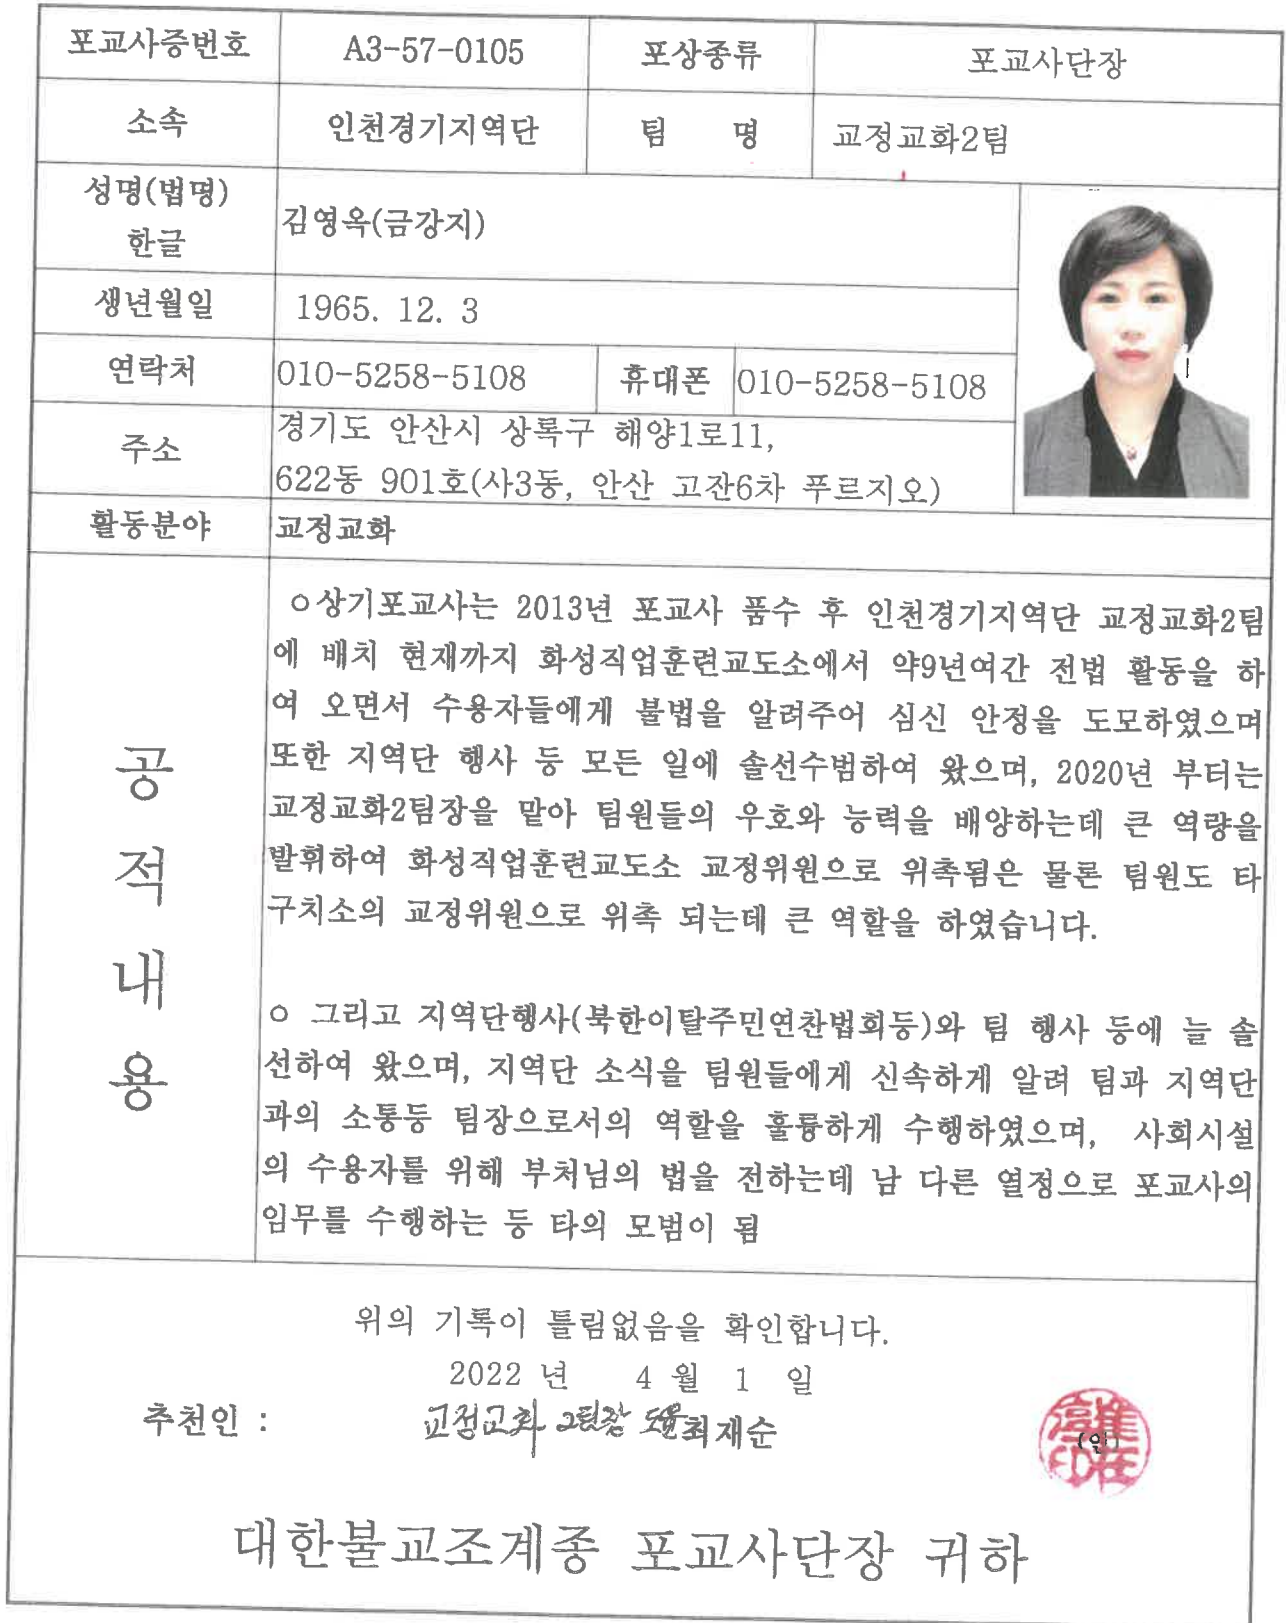 포교사증번호 A3-57-0105 포상종류 포교사단장
소속 인천경기지역단 팀 명 교정교화2팀
성명(법명)
한글
김영옥(금강지)
생년월일 1965. 12. 3
연락처 010-5258-5108 휴대폰 010-5258-5108
주소
경기도 안산시 상록구 해양1로11,
622동 901호(사3동, 안산 고잔6차 푸르지오)
활동분야 교정교화
공
적
내
용
ㅇ상기포교사는 2013년 포교사 품수 후 인천경기지역단 교정교화2팀
에 배치 현재까지 화성직업훈련교도소에서 약9년여간 전법 활동을 하
여 오면서 수용자들에게 불법을 알려주어 심신 안정을 도모하였으며
또한 지역단 행사 등 모든 일에 솔선수범하여 왔으며, 2020년 부터는
교정교화2팀장을 맡아 팀원들의 우호와 능력을 배양하는데 큰 역량을
발휘하여 화성직업훈련교도소 교정위원으로 위촉됨은 물론 팀원도 타
구치소의 교정위원으로 위촉 되는데 큰 역할을 하였습니다.
ㅇ 그리고 지역단행사(북한이탈주민연찬법회등)와 팀 행사 등에 늘 솔
선하여 왔으며, 지역단 소식을 팀원들에게 신속하게 알려 팀과 지역단
과의 소통등 팀장으로서의 역할을 훌륭하게 수행하였으며, 사회시설
의 수용자를 위해 부처님의 법을 전하는데 남 다른 열정으로 포교사의
임무를 수행하는 등 타의 모범이 됨
위의 기록이 틀림없음을 확인합니다.
2022 년 4 월 1 일
추천인 : 교정교화 최재순 (인)
대한불교조계종 포교사단장 귀하